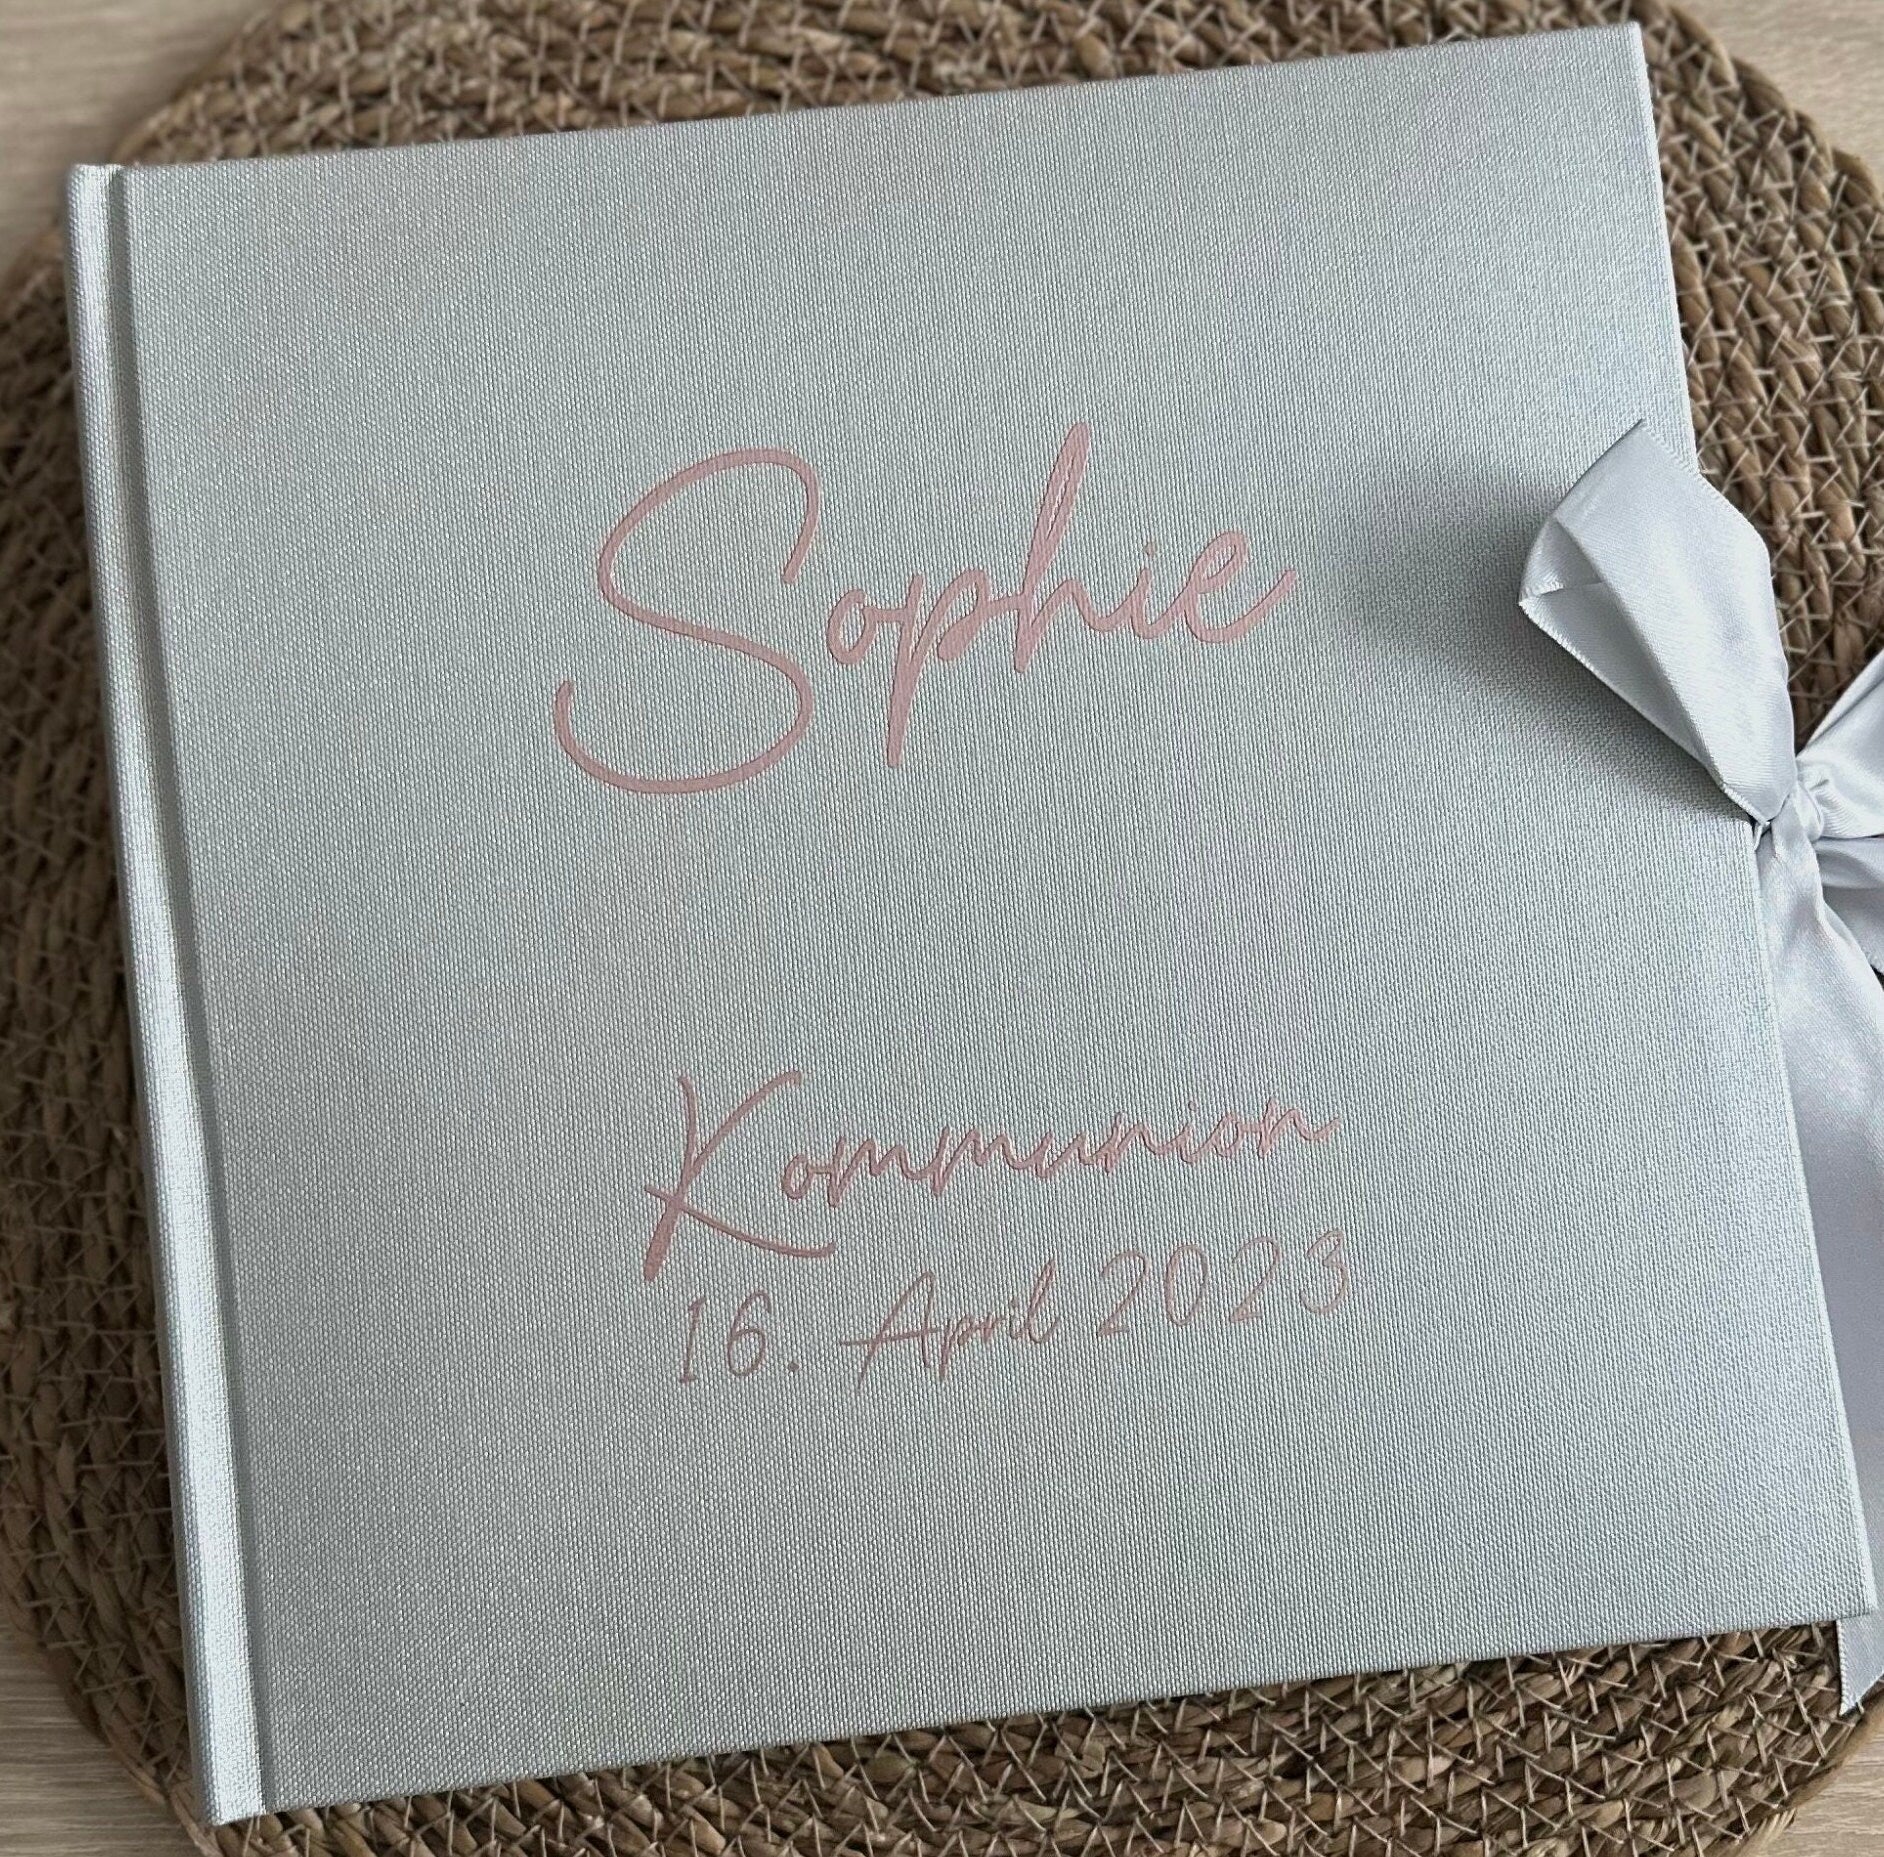 Sophie
Kommunion
16. April 2023